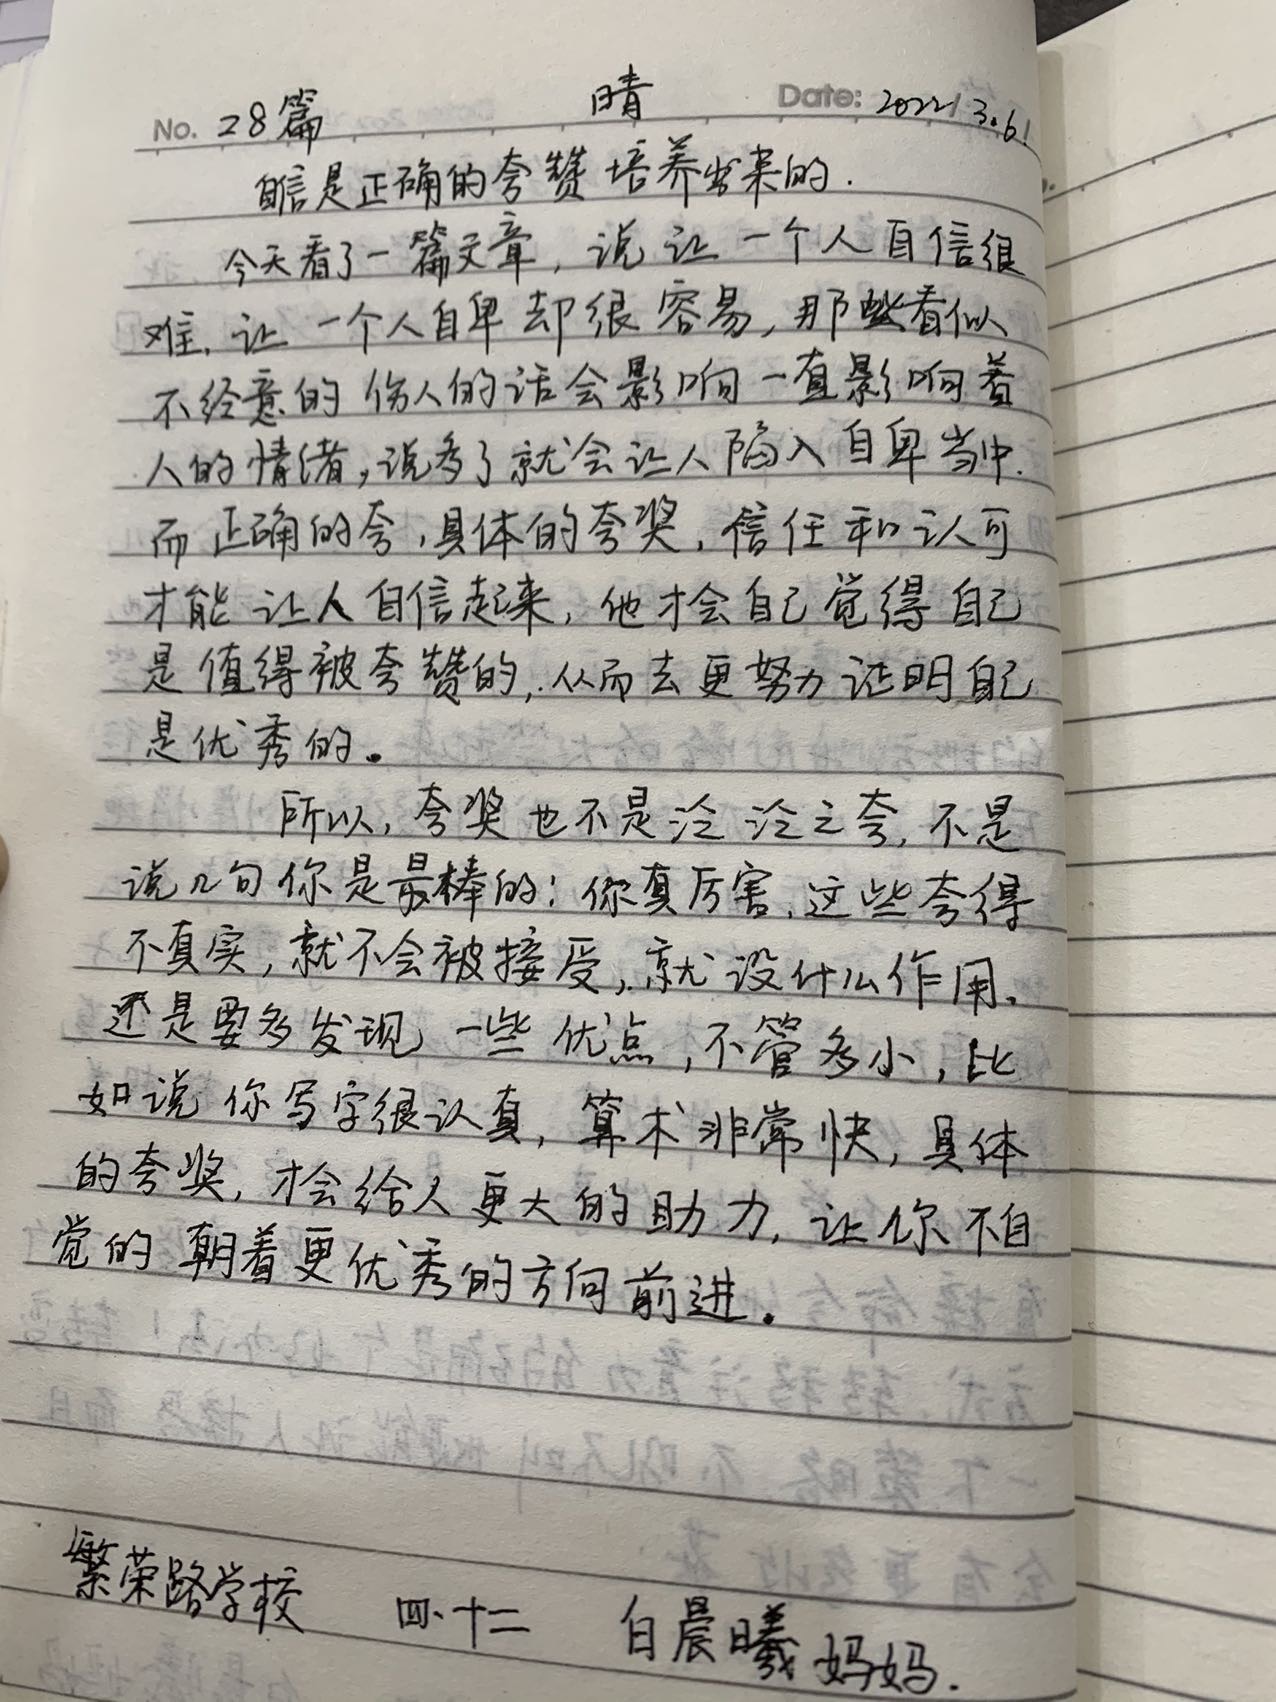 No. 28篇 晴 Date: 2022 3.6
自信是正确的夸赞培养出来的.
今天看了一篇文章, 说让一个人自信很
难, 让一个人自卑却很容易, 那些看似
不经意的伤人的话会影响一直影响着
人的情绪, 说多了就会让人陷入自卑当中.
而正确的夸, 具体的夸奖, 信任和认可
才能让人自信起来, 他才会自己觉得自己
是值得被夸赞的, 从而去更努力证明自己
是优秀的。
所以, 夸奖也不是泛泛之夸, 不是
说几句你是最棒的! 你真厉害, 这些夸得
不真实, 就不会被接受, 就没什么作用。
还是要多发现一些优点, 不管多小, 比
如说你写字很认真, 算术非常快, 具体
的夸奖, 才会给人更大的助力, 让你不自
觉的朝着更优秀的方向前进。
繁荣路学校 四·十二 白晨曦妈妈.